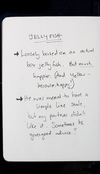 JELLYFISH
→ Loosely based on an actual
box jellyfish. But much
happier. (And yellow -
because happy)
→ He was meant to have a
simple line smile,
but my partner didn't
like it. Sometimes he
good advice!